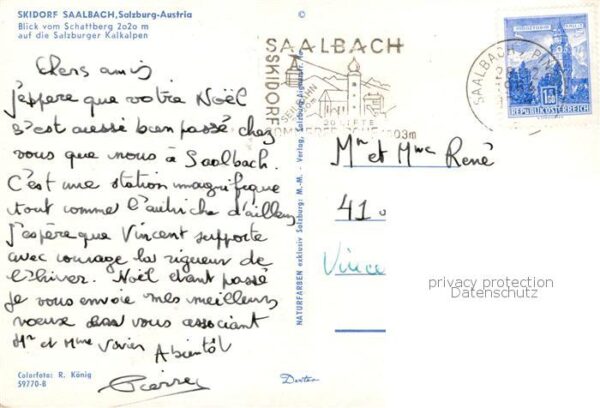 SKIDORF SAALBACH, Salzburg-Austria
Blick vom Schattberg 2020 m
auf die Salzburger Kalkalpen
Chers amis
j'espère que votre Noël
s'est aussi bien passé chez
vous que nous à Saalbach.
C'est une station magnifique
tout comme l'autriche d'ailleurs
j'espère que Vincent supporte
avec courage la rigueur de
l'hiver. Noël étant passé
je vous envoie mes meilleurs
voeux vous associant
Mr et Mme
A bientôt
Pierre
Colorfoto: R. König
59770-B
©
NATURFARBEN exklusiv Salzburg: M.-M. - Verlag, Salzburg
Dexter
SAALBACH
SKIDORF
SEILBAHN
20 LIFTE
1003m
SAALBACH
1.50
REPUBLIK ÖSTERREICH
Mr et Mme René
41
Vince
privacy protection
Datenschutz